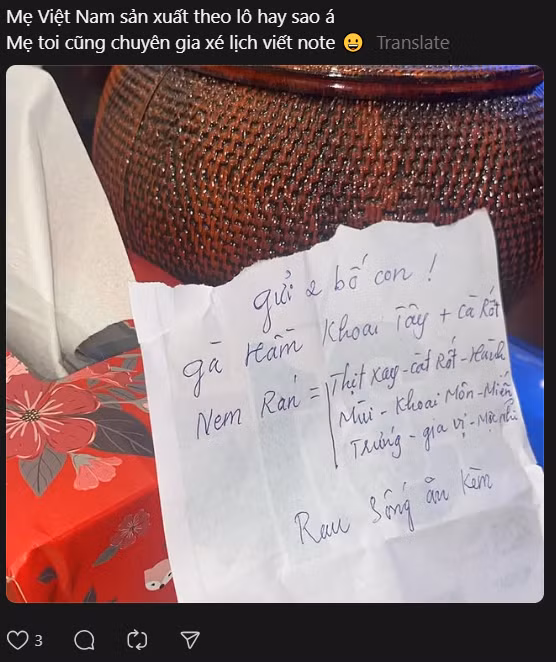 Mẹ Việt Nam sản xuất theo lô hay sao á
Mẹ toi cũng chuyên gia xé lịch viết note 😀 Translate
gửi 2 bố con !
gà Hầm Khoai Tây + Cà Rốt
Nem Rán = Thịt Xay - Cà Rốt - Hành
Mùi - Khoai Môn - Miến
Trứng - gia vị - Mộc nhĩ
Rau Sống ăn Kèm
3